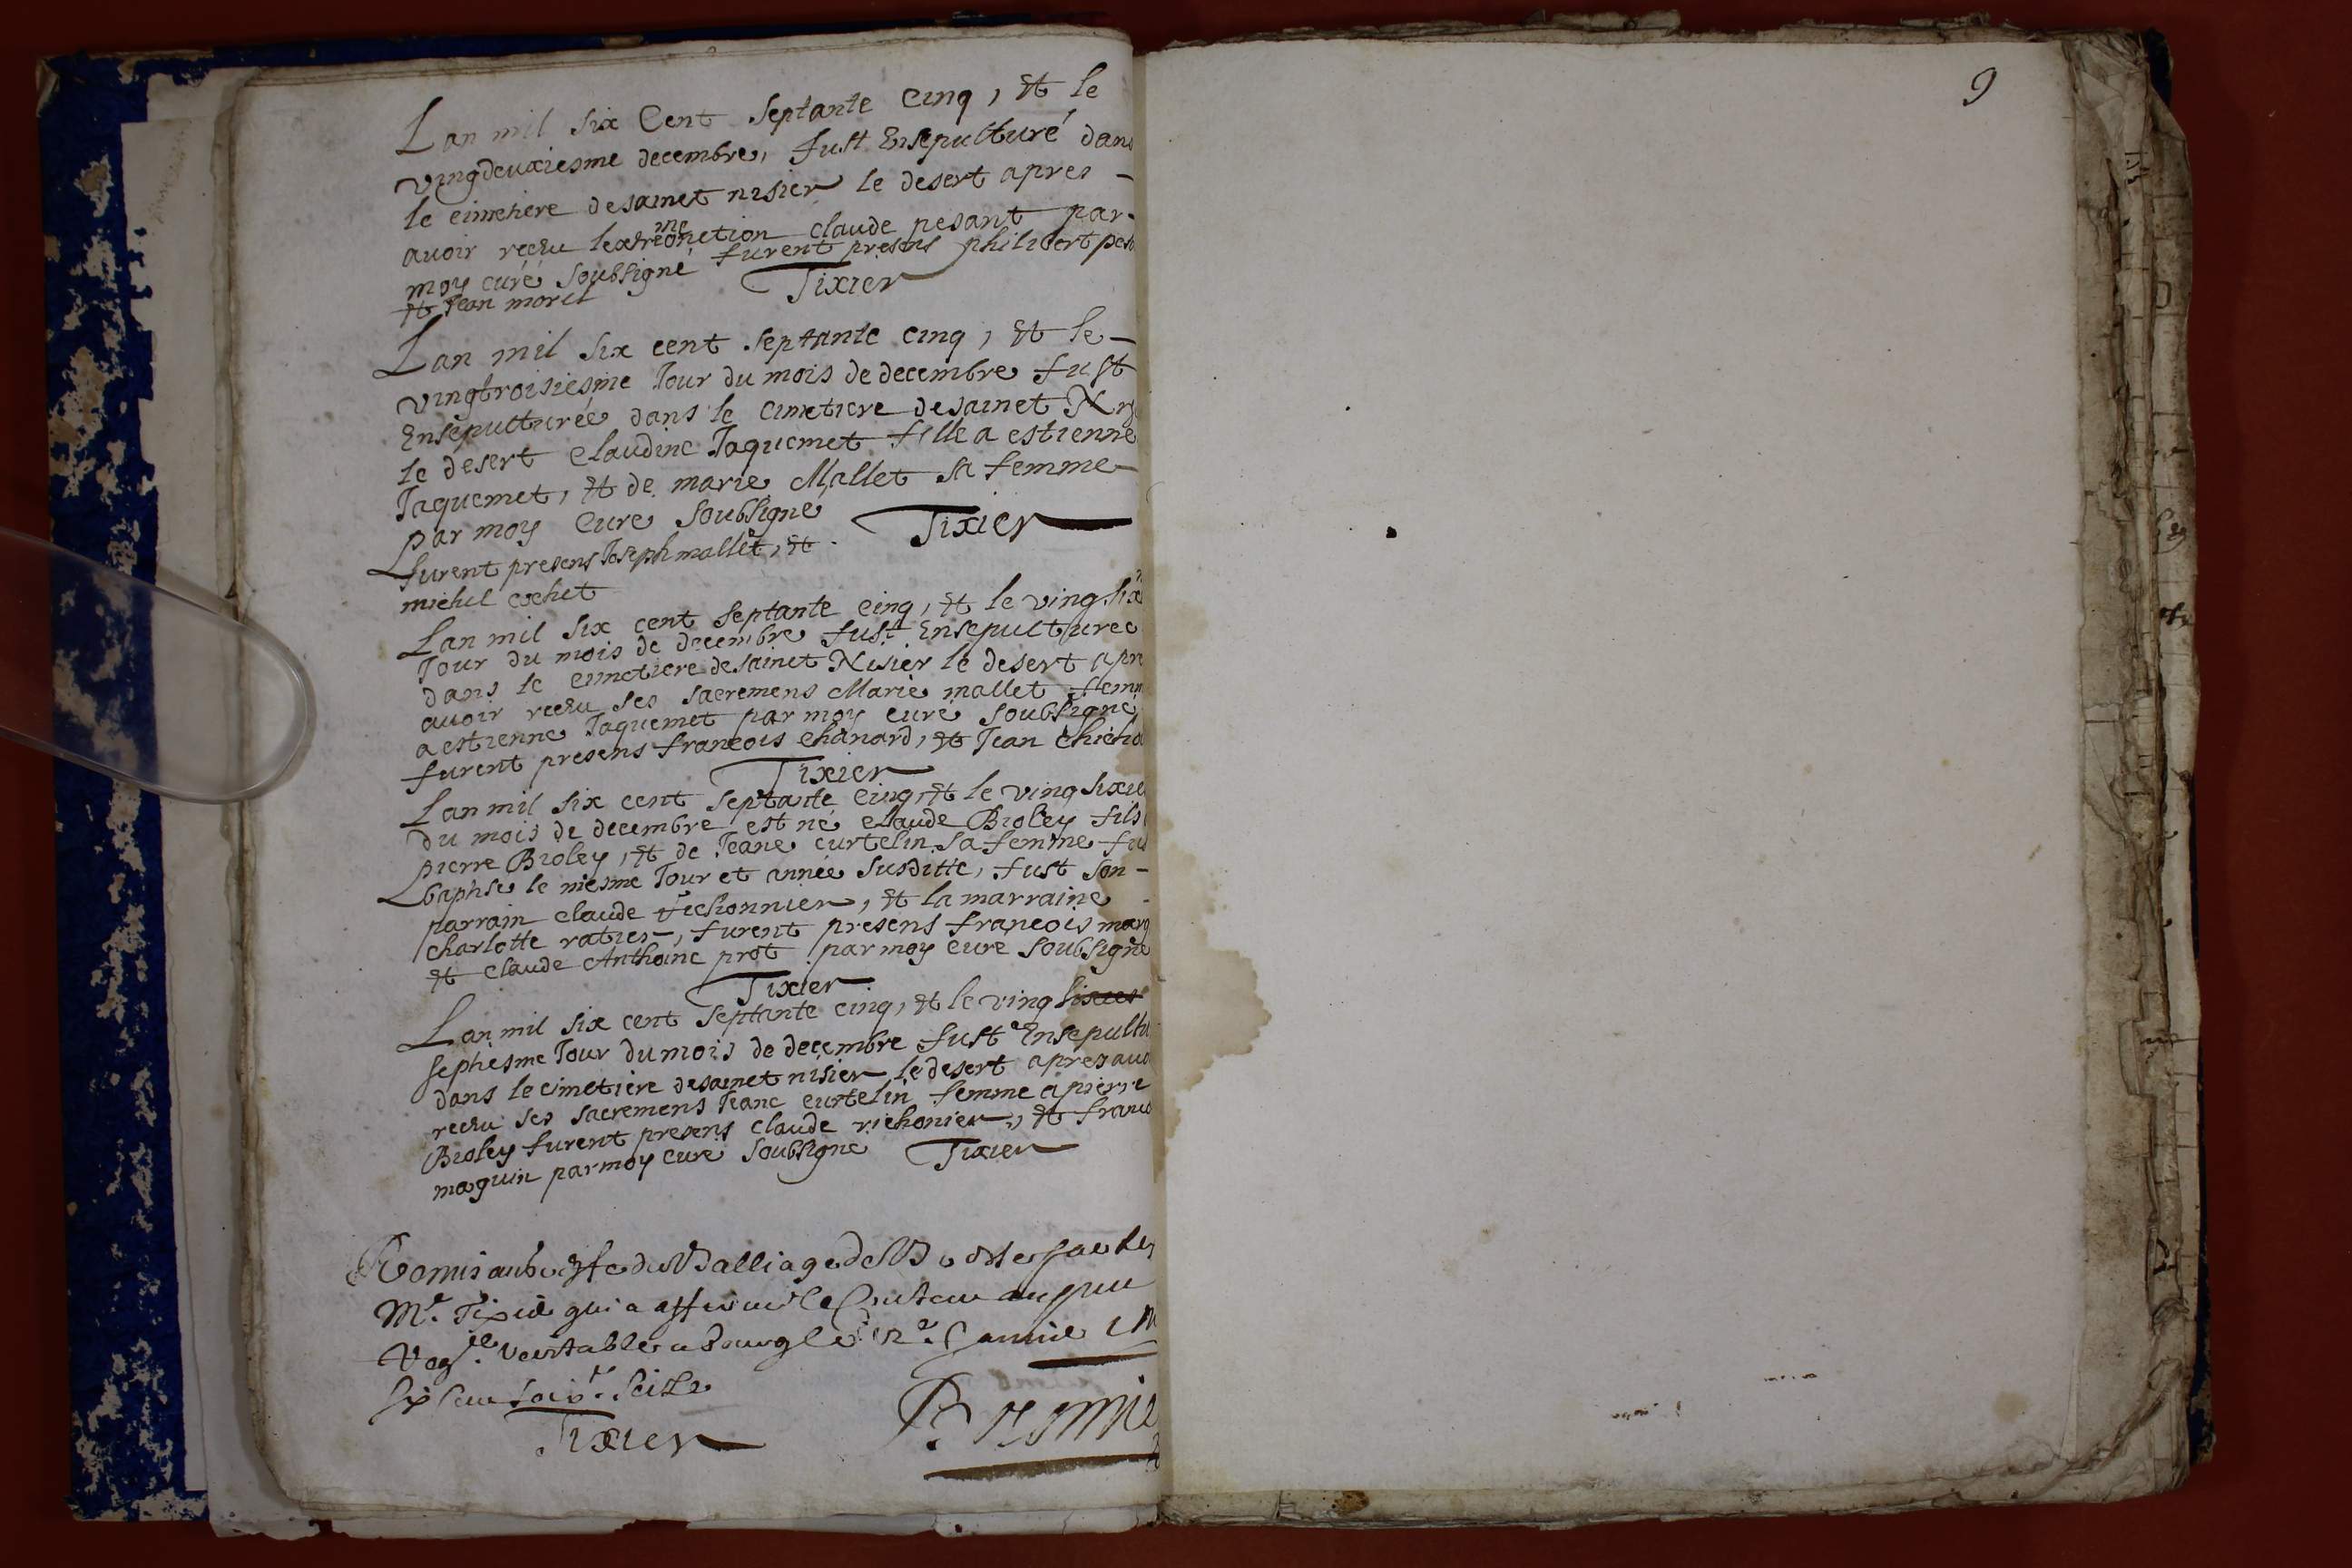 9
Lan mil six Cent septante cinq, Et le
vingdeuxiesme decembre, fust Ensepulturé dans
le cimetiere de sainct nisier le desert apres -
avoir receu lextremonction claude pesant par-
moy curé soubsigné furent presens philibert pesa
Et Jean morel Tixier
Lan mil six cent septante cinq, Et le -
vingtroisiesme Jour du mois de decembre fust
Ensepulturée dans le cimetiere de sainct Nis
le desert claudine Jaquemet fille a estienne
Jaquemet, Et de marie Mallet sa femme -
par moy Curé soubsigne Tixier
furent presens Joseph mallet, Et
michel cochet
Lan mil six cent septante cinq, Et le ving six
Jour du mois de decembre fust Ensepulturee
dans le cimetiere de sainct Nisier le desert apre
avoir receu ses sacremens Marie mallet femm
a estienne Jaquemet par moy curé soubsigné
furent presens francois chanard, Et Jean
Tixier
Lan mil six cent septante cinq, Et le ving sixie
du mois de decembre est né claude Broley fils
pierre Broley, Et de Jeane curtelin sa femme fus
baptise le mesme Jour et année susditte, fust son -
parrain claude richonnier, Et la marraine -
charlotte ratier, furent presens francois mang
Et claude Anthoine prost par moy curé soubsigne
Tixier
Lan mil six cent septante cinq, Et le ving sixies
septiesme Jour du mois de decembre fust Ensepultu
dans le cimetiere de sainct nisier le desert apres avo
receu ses sacremens Jeane curtelin femme a pierre
Broley furent presens claude richonier, Et franco
maguin par moy cure soubsigne Tixier
Remis au greffe du Balliage de B par
Mr. Tixier qui a affirmé le
veritable a Bourg le Janvie
six cen soix.t seize
Tixier